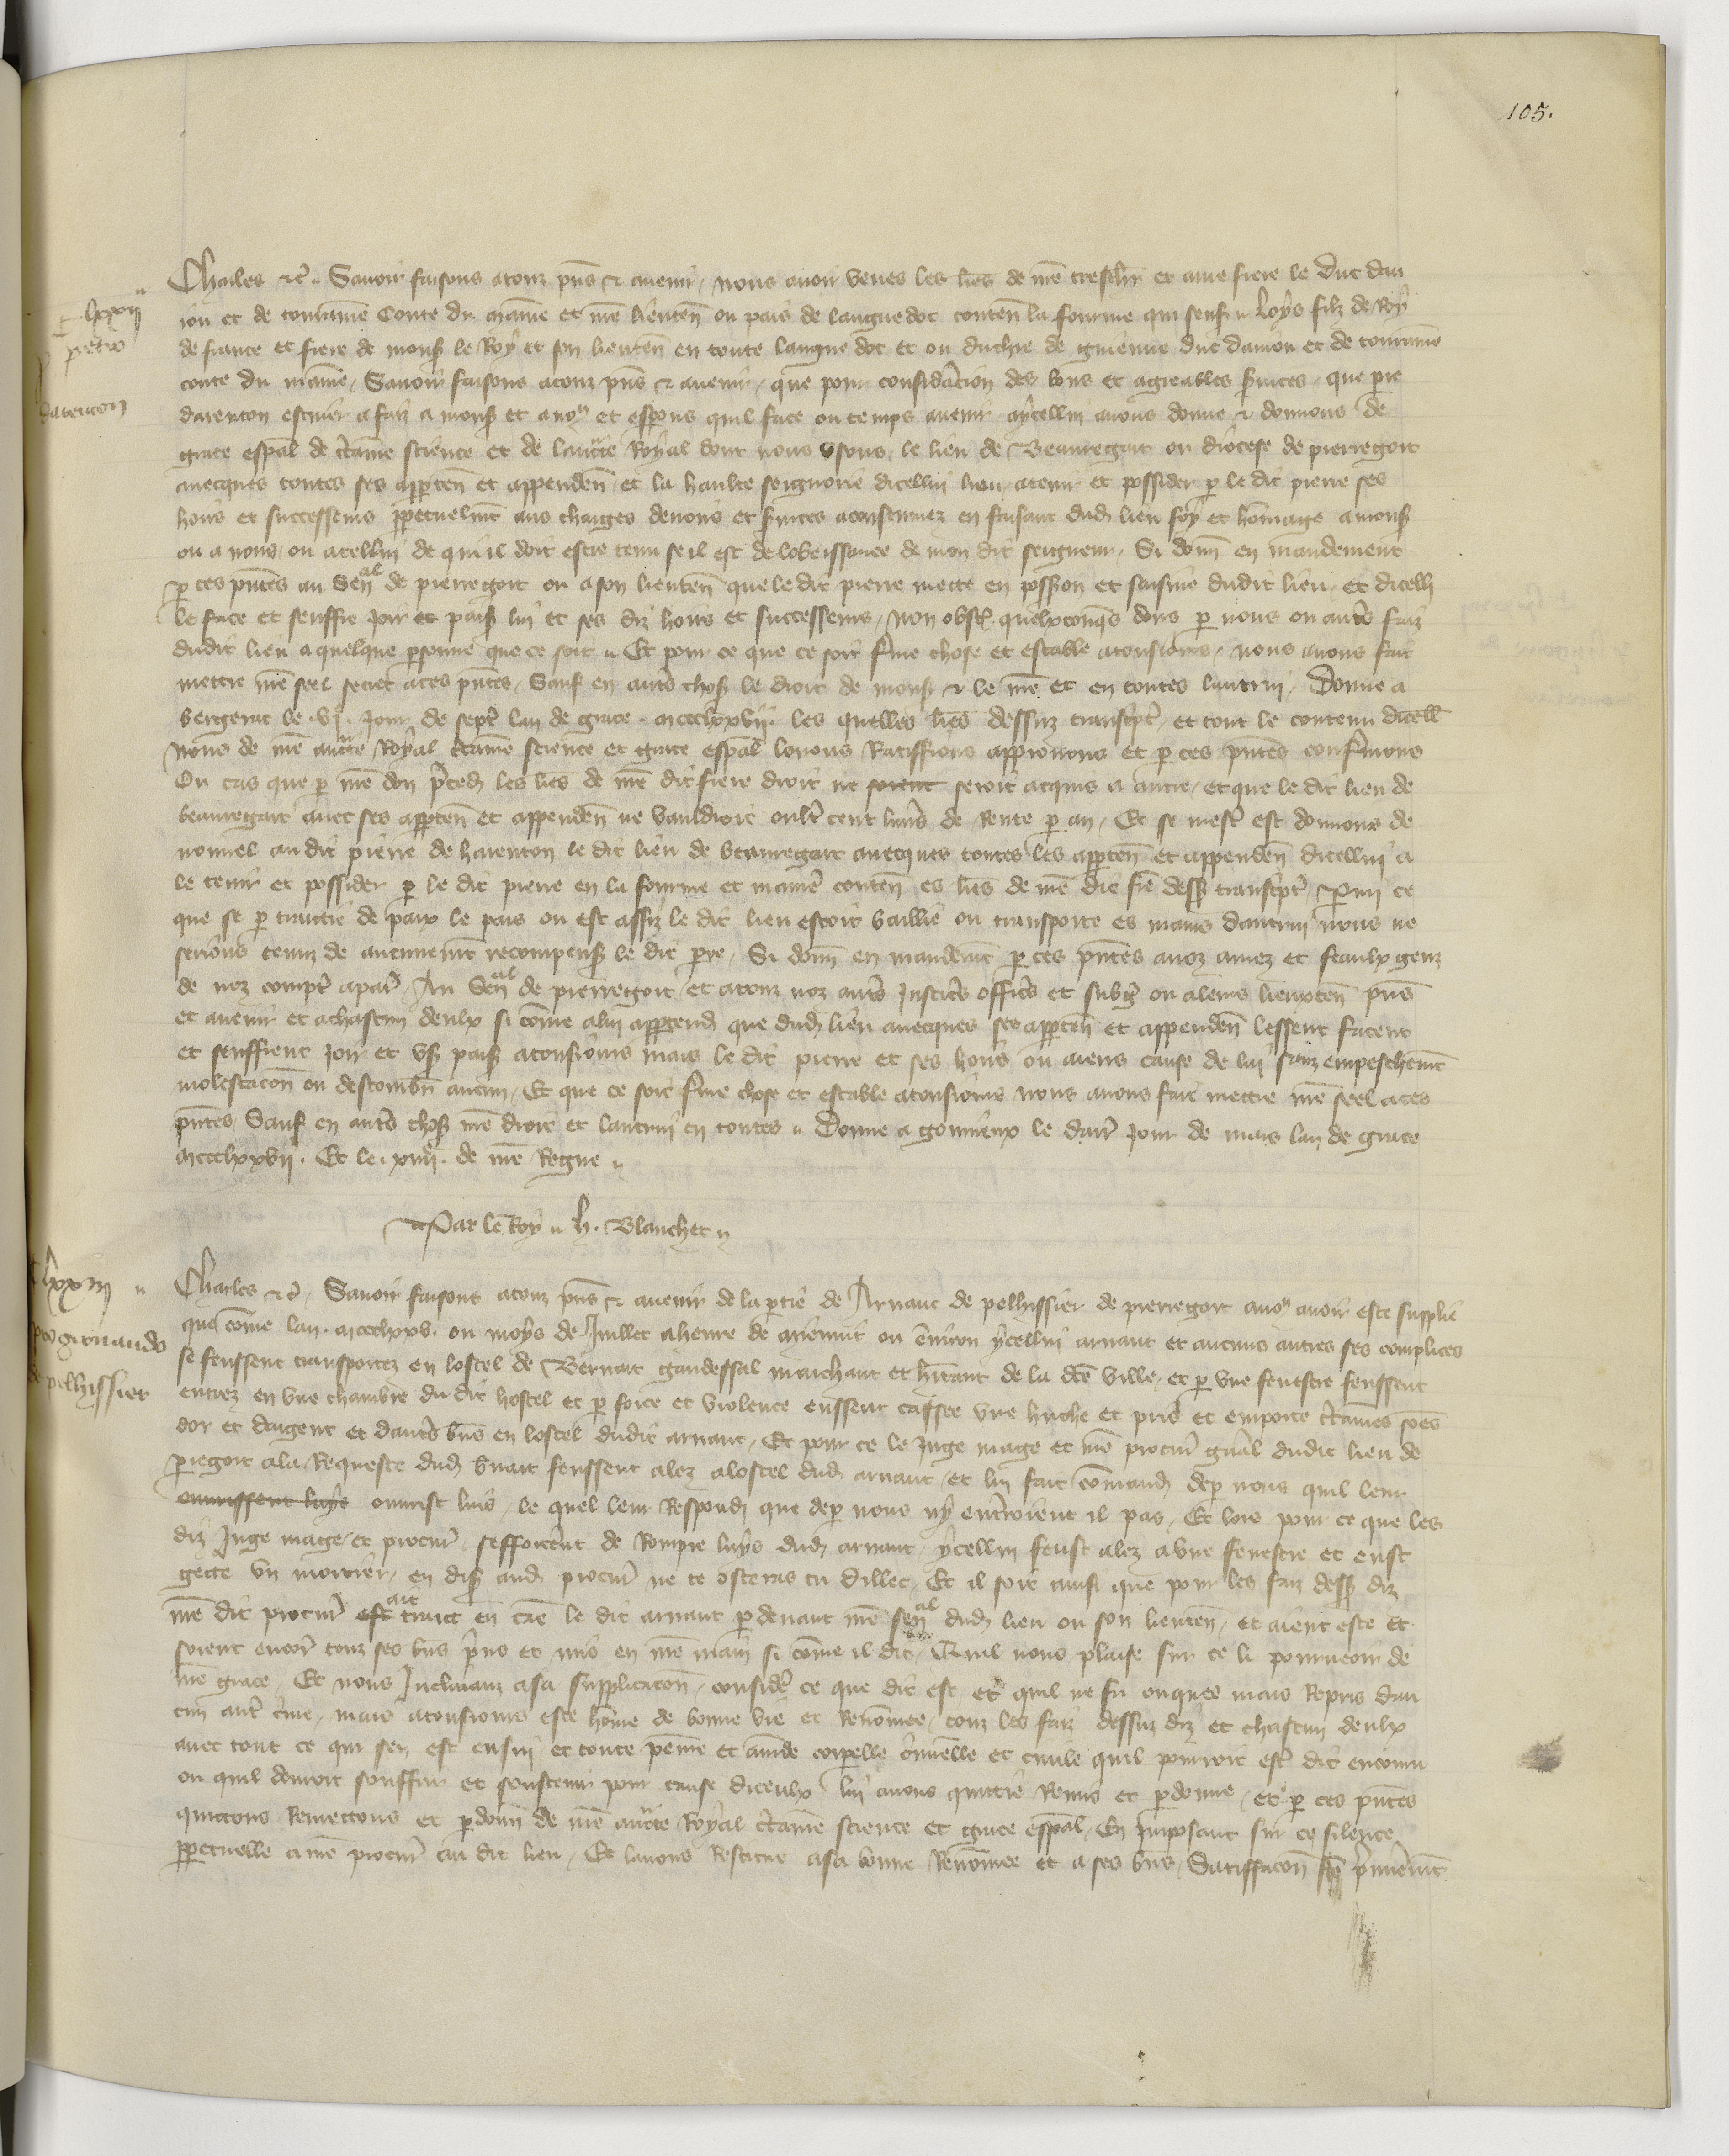 105.
Charles etc. Savoir faisons a touz pns et avenir, nous avoir veues les lres de nre treschr et ame frere le Duc dan
jou et de touraine Conte du maine et nre lieuten ou pais de languedoc conten la fourme qui sensi. Loys filz de Roy
lxxii
pro petro
de france et frere de mons le Roy et son lieuten en toute langue doc et ou duchie de guienne duc danjou et de touraine
conte du maine, Savoir faisons a touz pns et avenir, que pour consideracion des bons et agreables services, que pre
darenton
darenton escuier a faiz a mons et a nos et esperons quil face ou temps avenir aycellui avons donne et donnons de
grace espal de certaine science et de lauctte Royal dont nous usons, le lieu de Beauregart ou diocese de pierregort
avecques toutes ses apparten et appenden et la haulte seignorie dicellui lieu, a tenir et possider p le dit pierre ses
hoirs et successeurs ppetuelmt aus charges devoirs et services acoustumez en faisant dud lieu foy et hommage a mons
ou a nous, ou a cellui de qui il doit estre tenu se il est de lobeissance de mon dit seigneur, Si donn en mandement
p ces pntes au Senal de pierregort ou a son lieuten que le dit pierre mette en possion et saisine dudit lieu, et dicelli
le face et seuffre joir et pais lui et ses diz hoirs et successeurs, Non obst quelxconqs dons p nous ou autrs faiz
dudit lieu a quelque psonne que ce soit. Et pour ce que ce soit ferme chose et estable a tousiours, nous avons fait
mettre nre seel secret a ces pntes, Sauf en autrs choses le droit de mons et le nre et en toutes lautrui, Donne a
bergerac le .vi. jour de sept lan de grace .mccclxxvii. les quelles lres dessuz transcpt, et tout le contenu dicell
Nous de nre auctte Royal certaine science et grace espal louons Ratiffions approuvons et p ces pntes confermons
Ou cas que p nre don preced les lres de nre dit frere droit ne soient seroit acquis a autre, et que le dit lieu de
beauregart avec ses apparten et appenden ne vauldroit oultr cent livrs de Rente p an, Et se mestr est donnons de
nouvel au dit pierre de harenton le dit lieu de beauregart avecques toutes les apparten et appenden dicellui a
le tenir et possider p le dit pierre en la fourme et manie conten es lres de nre dit fre dess transcpt, Parmi ce
que se p traictie de paix le pais ou est assiz le dit lieu estoit baillie ou transporte es mains dautrui nous ne
serions tenuz de aucunemt recompenser le dit pre, Si donn en mandemt p ces pntes a noz amez et feaulx genz
de noz compt a paris, Au Senal de pierregort et a touz noz autrs Justicrs officrs et subgez ou a leurs lieuxten pns
et avenir et a chascun deulx si comme a lui appartend que dud lieu avecques ses apparten et appenden lessent facent
et seuffrent joir et user pais a tousiours mais le dit pierre et ses hoirs ou aiens cause de lui sanz empeschemt
molestacon ou destourb aucun, Et que ce soit ferme chose et estable a tousiours nous avons fait mettre nre seel a ces
pntes Sauf en autrs choses nre droit et lautrui en toutes. Donne a gouvieux le darr jour de mars lan de grace
mccclxxvii. Et le .xiiii. de nre Regne.
Par le Roy. H. Blanchet.
lxxiii
Charles etc, Savoir faisons a touz pns et avenir de la ptie de Arnaut de pelhissier de pierregort a nos avoir este supplie
pro arnaudo
que comme lan .mccclxxv. ou moys de Juillet a heure de mienuit ou environ ycellui arnaut et aucuns autres ses complices
se feussent transportez en lostel de Bernart gaudessal marchant et hitant de la dce ville, et p une fenestre feussent
de pelhissier
entrez en une chambre du dit hostel et p force et violence eussent cassee une huche et pris et emporte certaines soes
dor et dargent et dautrs bns en lostel dudit arnaut, Et pour ce le Juge mage et nre procur gnal dudit lieu de
pregort a la Requeste dud bnart feussent alez a lostel dud arnaut, et lui fait command dep nous quil leur
ouvrissent luys ouvrist luis, le quel leur Respond que dep nous ny entrroient il pas, Et lors pour ce que les
diz Juge mage et procur sefforcent de Rompre luys dud arnaut, ycellui feust alez a une fenestre et eust
gette un mortier, en dis aud procur ne te osteras tu dillec, Et il soit ainsi que pour les faiz dess diz
nre dit procur est ait traict en cae le dit arnaut p devant nre senal dud lieu ou son lieuten, et aient este et
soient encor touz ses bns prins et mis en nre main si comme il dit, Quil nous plaise sur ce li pourveoir de
nre grace, Et nous Inclinanz a sa supplicacon, consider ce que dit est et quil ne fu onques mais Repris dau
cun autr crime, mais a tousiours este homme de bonne vie et Renommee, touz les faiz dessuz diz et chascun deulx
avec tout ce qui sen est ensui et toute peine et amde corpelle criminelle et civile quil pourroit estr dit encouru
ou quil devroit souffrir et soustenir pour cause diceulx lui avons quittie Remis et pdonne, et p ces pntes
quittons Remettons et pdonn de nre auctte Royal certaine science et grace espal, En Imposant sur ce silence
ppetuelle a nre procur au dit lieu, Et lavons Restitue a sa bonne Renommee et a ses bns, Satiffacon fte primieremt